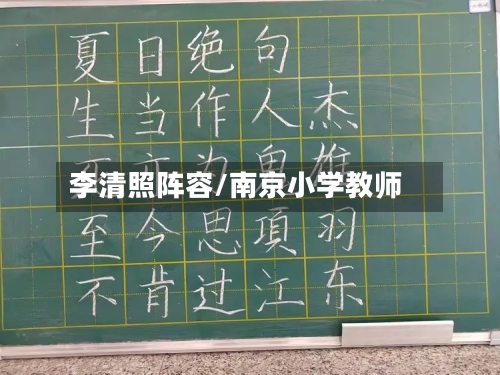 夏日绝句
生当作人杰
李清照阵容/南京小学教师
至今思項羽
不肯过江东